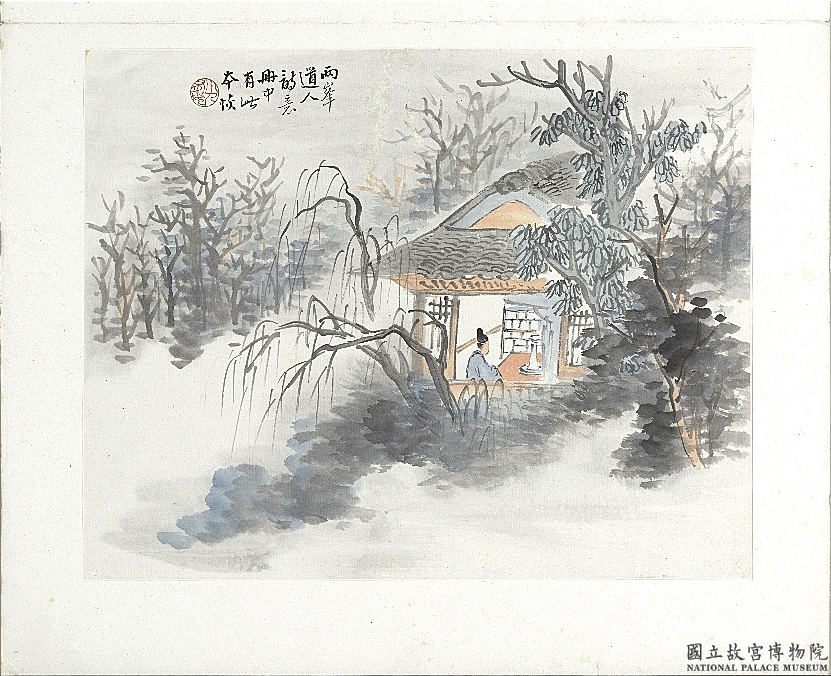 兩峯
道人
詩意
冊中
有此
本恢
國立故宮博物院
NATIONAL PALACE MUSEUM